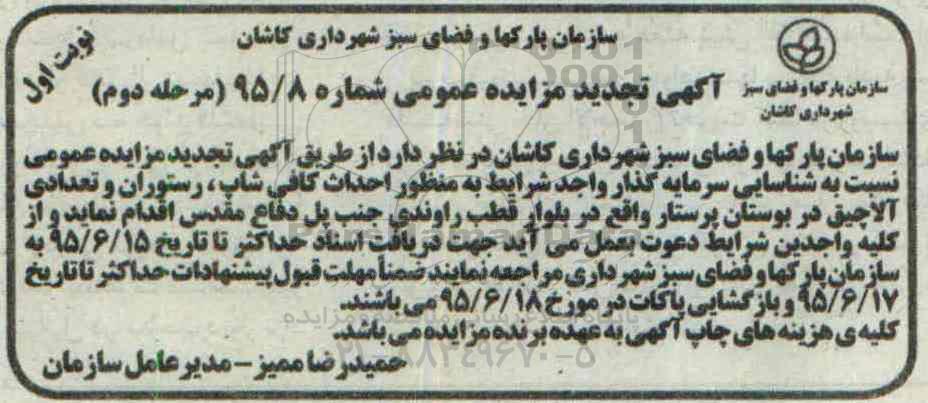 سازمان پارکها و فضای سبز شهرداری کاشان
نوبت اول
آگهی تجدید مزایده عمومی شماره ۹۵/۸ (مرحله دوم)
سازمان پارکها و فضای سبز
شهرداری کاشان
سازمان پارکها و فضای سبز شهرداری کاشان در نظر دارد از طریق آگهی تجدید مزایده عمومی
نسبت به شناسایی سرمایه گذار واجد شرایط به منظور احداث کافی شاپ، رستوران و تعدادی
آلاچیق در بوستان پرستار واقع در بلوار قطب راوندی جنب پل دفاع مقدس اقدام نماید و از
کلیه واجدین شرایط دعوت بعمل می آید جهت دریافت اسناد حداکثر تا تاریخ ۹۵/۶/۱۵ به
سازمان پارکها و فضای سبز شهرداری مراجعه نمایند ضمناً مهلت قبول پیشنهادات حداکثر تا تاریخ
۹۵/۶/۱۷ و بازگشایی پاکات در مورخ ۹۵/۶/۱۸ می باشند.
کلیه ی هزینه های چاپ آگهی به عهده برنده مزایده می باشد.
حمیدرضا ممیز - مدیر عامل سازمان